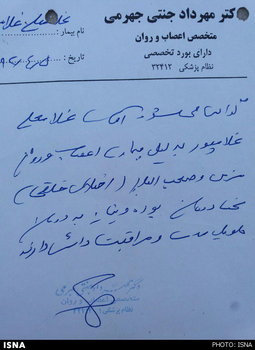 دکتر مهرداد جنتی جهرمی
متخصص اعصاب و روان
دارای بورد تخصصی
نظام پزشکی ۳۲۴۱۲
نام بیمار:
تاریخ:
گواهی می‌شود آقای غلامعلی
غلامپور به دلیل بیماری اعصاب و روان
مزمن و صعب العلاج (اختلال خلقی)
تحت درمان بوده و نیاز به درمان
طولانی مدت و مراقبت دائم دارند
متخصص اعصاب و روان
ISNA
PHOTO: ISNA